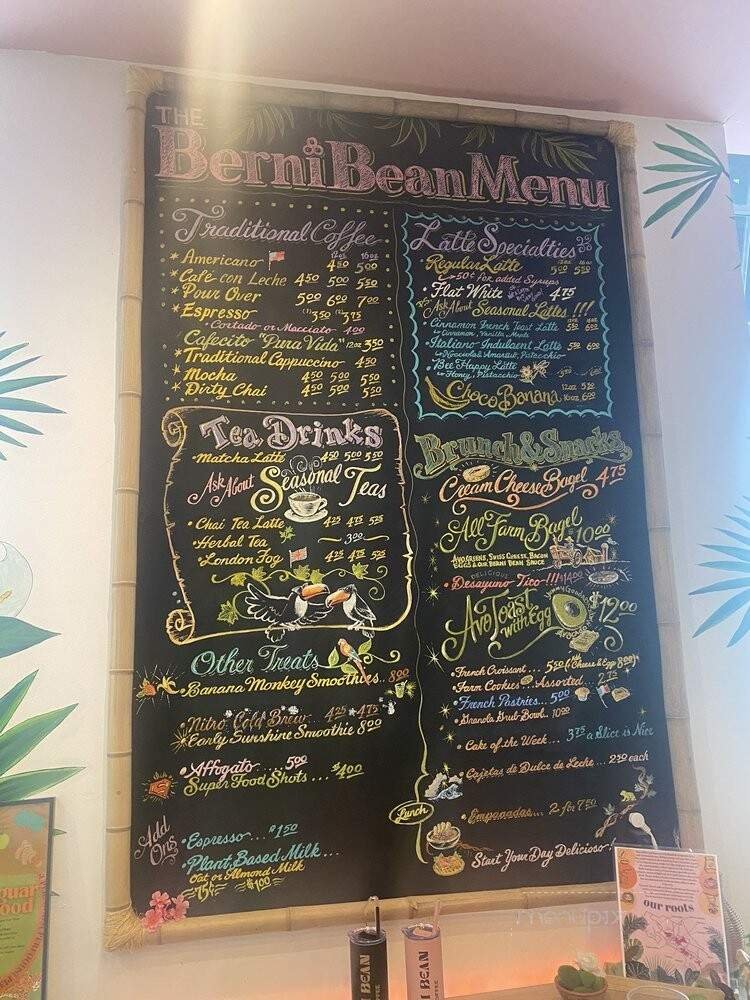 THE
Berni Bean Menu
Traditional Coffee
12oz 16oz
* Americano 4.50 5.00
* Café con Leche 4.50 5.00 5.50
* Pour Over 5.00 6.00 7.00
* Espresso (1) 3.50 (2) 3.75
• Cortado or Macciato 4.00
Cafecito "Pura Vida" 12oz 3.50
* Traditional Cappuccino 4.50
* Mocha 4.50 5.00 5.50
* Dirty Chai 4.50 5.00 5.50
Latte Specialties
12oz 16oz
Regular Latte 5.00 5.50
50¢ for added Syrups
Flat White 4.75
Ask About Seasonal Lattes !!!
Cinnamon French Toast Latte 5.50 6.00
Cinnamon, Vanilla, Maple
Italiano Indulgent Latte 5.50 6.00
Bee Happy Latte
Honey, Pistacchio
Choco Banana 12oz. 5.50
16oz. 6.00
Tea Drinks
• Matcha Latte 4.50 5.00 5.50
Ask About Seasonal Teas
• Chai Tea Latte 4.25 4.75 5.25
• Herbal Tea 3.00
• London Fog 4.25 4.75 5.25
Brunch & Snacks
Cream Cheese Bagel 4.75
All Farm Bagel
$10.00
Avo, Greens, Swiss Cheese, Bacon
Eggs & our Berni Bean Sauce
DELICIOUS
• Desayuno Tico-!!! $14.00
Avo Toast with Egg $12.00
• French Croissant... 5.50 (with Cheese & Egg 8.00)
• Farm Cookies Assorted... 2.75
• French Pastries... 5.00
• Granola Grub Bowl.. 10.00
• Cake of the Week... 3.75 a Slice is Nice
• Cajetas de Dulce de Leche... 2.50 each
Lunch
• Empanadas... 2 for 7.50
Start Your Day Delicioso-!
Other Treats
• Banana Monkey Smoothies.. 8.00
• Nitro Cold Brew... 4.25 4.75
Early Sunshine Smoothie 8.00
• Affogato... 5.00
Super Food Shots... $4.00
Add Ons
• Espresso... $1.50
• Plant Based Milk...
Oat or Almond Milk
75¢ $1.00
our roots
BEAN
BEAN